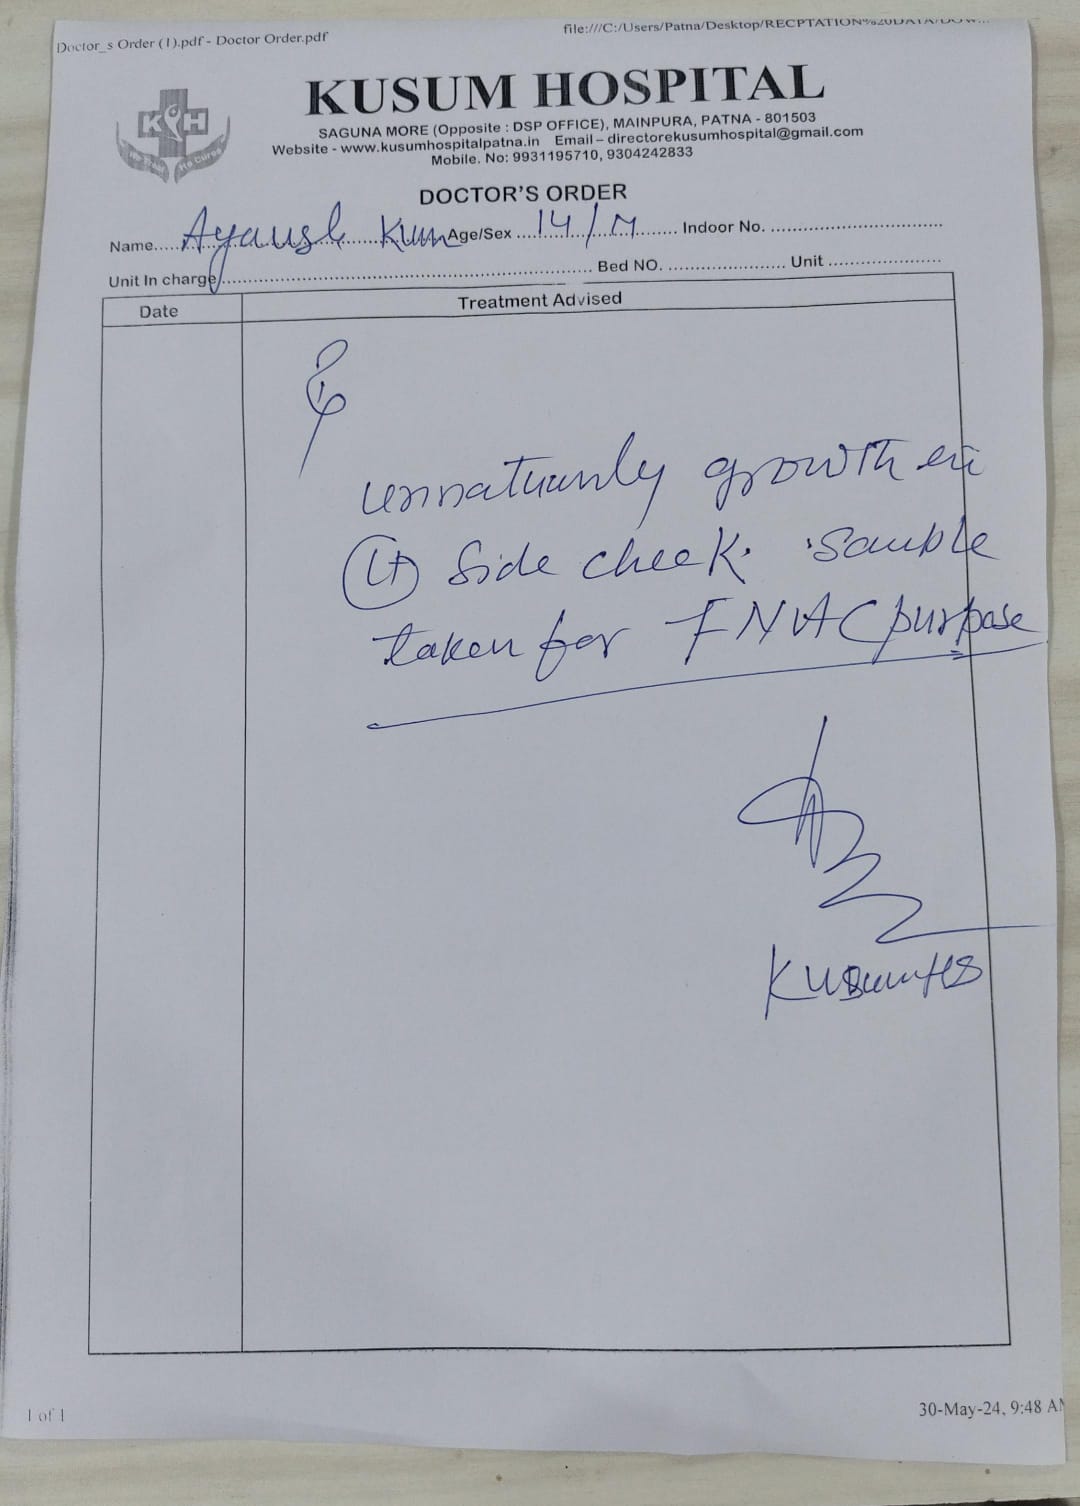 Doctor_s Order (1).pdf - Doctor Order.pdf
file:///C:/Users/Patna/Desktop/RECPTATION%20DATA/DOW...
KUSUM HOSPITAL
SAGUNA MORE (Opposite : DSP OFFICE), MAINPURA, PATNA - 801503
Website - www.kusumhospitalpatna.in Email – directorekusumhospital@gmail.com
Mobile. No: 9931195710, 9304242833
KH
DOCTOR'S ORDER
Name..... Ayaush Kum Age/Sex .... 14/M ....... Indoor No. ..................................
Unit In charge................................................................ Bed NO. ...................... Unit ......................
Date Treatment Advised
unnaturanly growth in
Lt side cheek. sample
taken for FNAC purpose
Kusum HS
1 of 1
30-May-24, 9:48 AM